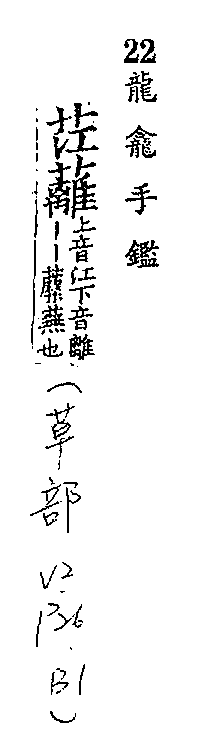 22龍龕手鑑
茳蘺上音江下音離
｜｜蘪蕪也
(草部 V2.
P36.
B1)